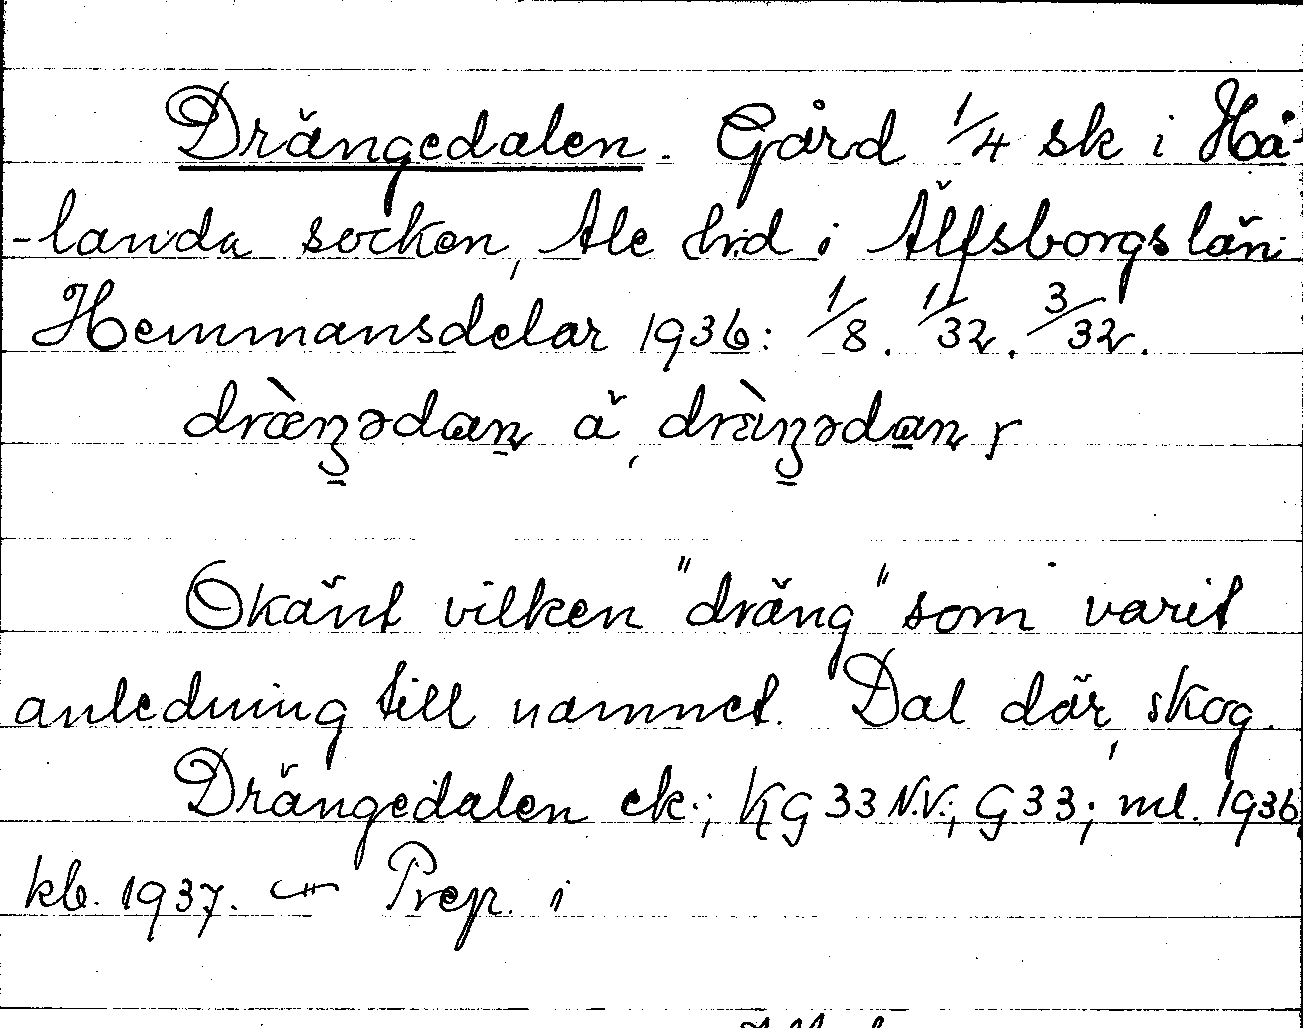 Drängedalen. Gård 1/4 sk i Hå-
-landa socken, Ale hrd i Älfsborgs län.
Hemmansdelar 1936: 1/8. 1/32. 3/32.
Okänt vilken "dräng" som varit
anledning till namnet. Dal där, skog.
Drängedalen ek.; KG 33 N.V.; G 33; ml. 1936,
kb. 1937. — Prep. i